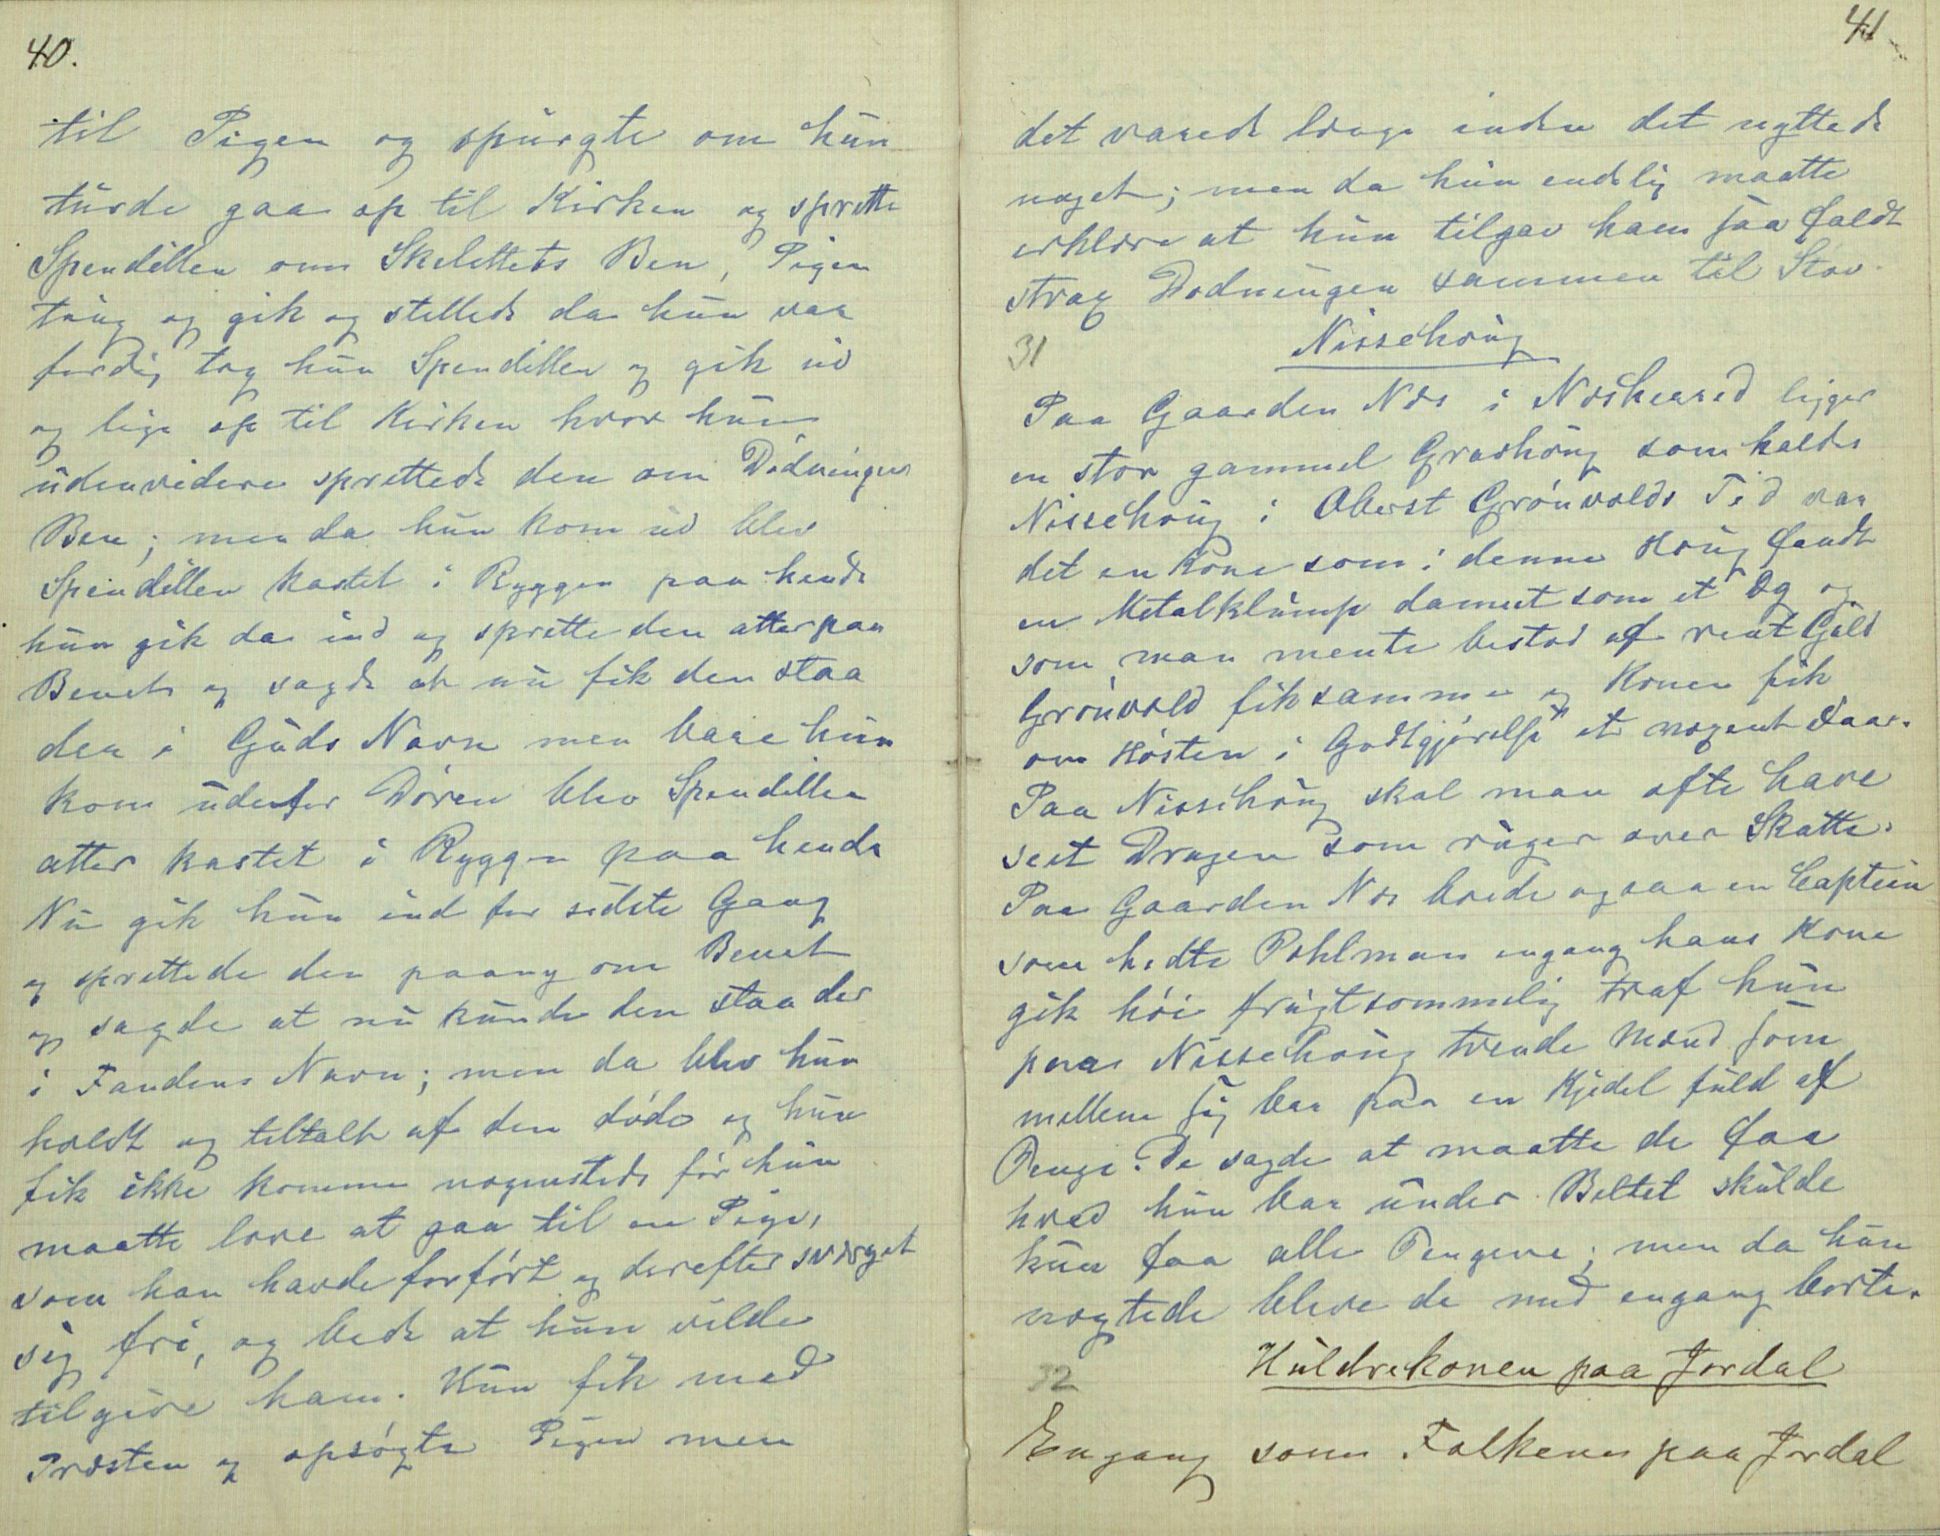 40.
til Pigen og spurgte om hun
turde gaa op til Kirken og sprette
Spendillen om Skelettets Ben, Pigen
taug og gik og stellede da hun var
færdig tog hun Spendillen og gik ud
og lige op til Kirken hvor hun
udenvidere sprettede den om Dødningens
Ben; men da hun kom ud blev
Spendillen kastet i Ryggen paa hende
hun gik da ind og sprette den atter paa
Benet og sagde at nu fik den staa
der i Guds Navn men bare hun
kom udenfor Døren blev Spendillen
atter kastet i Ryggen paa hende
Nu gik hun ind for sidste Gang
og sprettede den paany om Benet
og sagde at nu kunde den staa der
i Fandens Navn; men da blev hun
holdt og tiltalt af den døde og hun
fik ikke komme nogensteds før hun
maatte love at gaa til en Pige,
som han havde forført og derefter sværget
sig fri, og bede at hun vilde
tilgive ham. Hun fik med
Præsten og opsøgte Pigen men
41
det varede længe inden det nyttede
noget; men da hun endelig maatte
erklære at hun tilgav ham saa faldt
strax Dødningen sammen til Støv.
31 Nissehoug
Paa Gaarden Næs i Næsherred ligger
en stor gammel Græshoug som kaldes
Nissehoug i Oberst Grönvolds Tid var
det en Kone som i denne Houg fandt
en Metalklump dannet som et Æg og
som man mente bestod af rent Guld
Grönvold fik samme og Konen fik
om Høsten i Godtgjørelse et magert Faar.
Paa Nissehoug skal man ofte have
seet Dragen som ruger over Skatte.
Paa Gaarden Næs boede ogsaa en Captein
som hedte Pohlman engang hans Kone
gik høi frugtsommelig traf hun
paa Nissehoug trende Mænd som
mellem sig bar paa en Kjedel fuld af
Penge. De sagde at maatte de faa
hvad hun bar under Beltet skulde
hun faa alle Pengene; men da hun
nægtede bleve de med engang borte.
32 Huldrekonen paa Jordal
Engang som Folkene paa Jordal